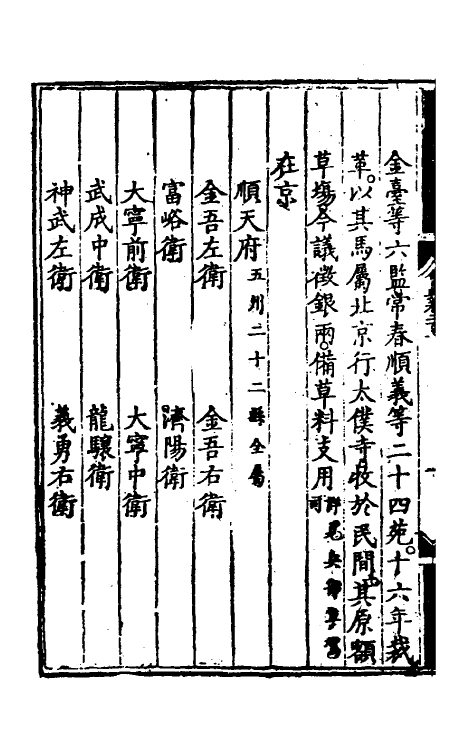 金臺等六監常春順義等二十四苑十六年裁
革以其馬屬北京行太僕寺收於民間其原額
草塲今議徵銀兩備草料支用
在京
順天府五州二十二縣全屬
金吾左衛 金吾右衛
富峪衛 濟陽衛
大寧前衛 大寧中衛
武成中衛 龍驤衛
神武左衛 義勇右衛